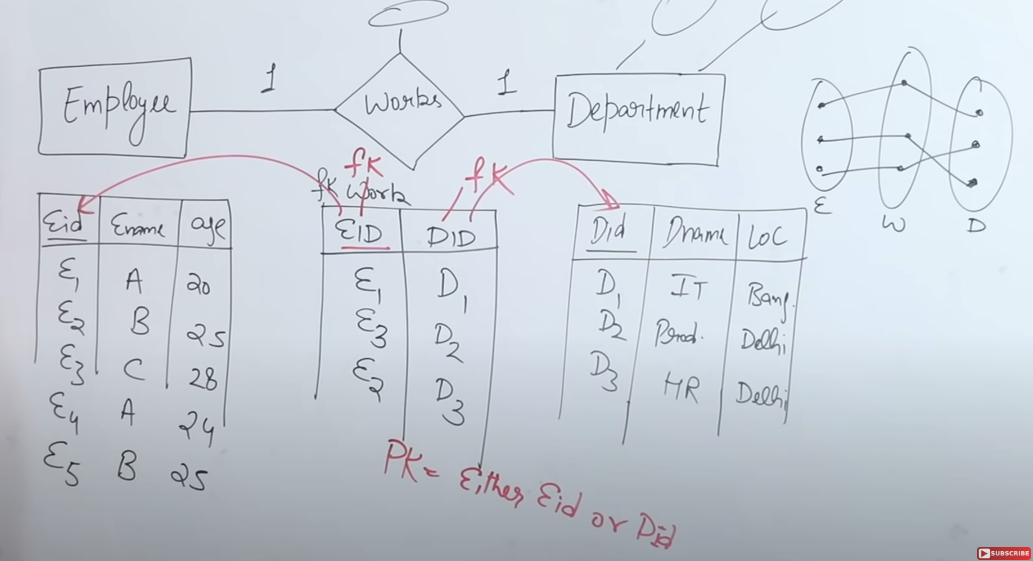 Employee 1 Works 1 Department
fk fk
fk Work
Eid Ename age
E1 A 20
E2 B 25
E3 C 28
E4 A 24
E5 B 25
EID DID
E1 D1
E3 D2
E2 D3
Did Dname LOC
D1 IT Bang.
D2 Prod. Delhi
D3 HR Delhi
E W D
PK = Either Eid or Did
SUBSCRIBE